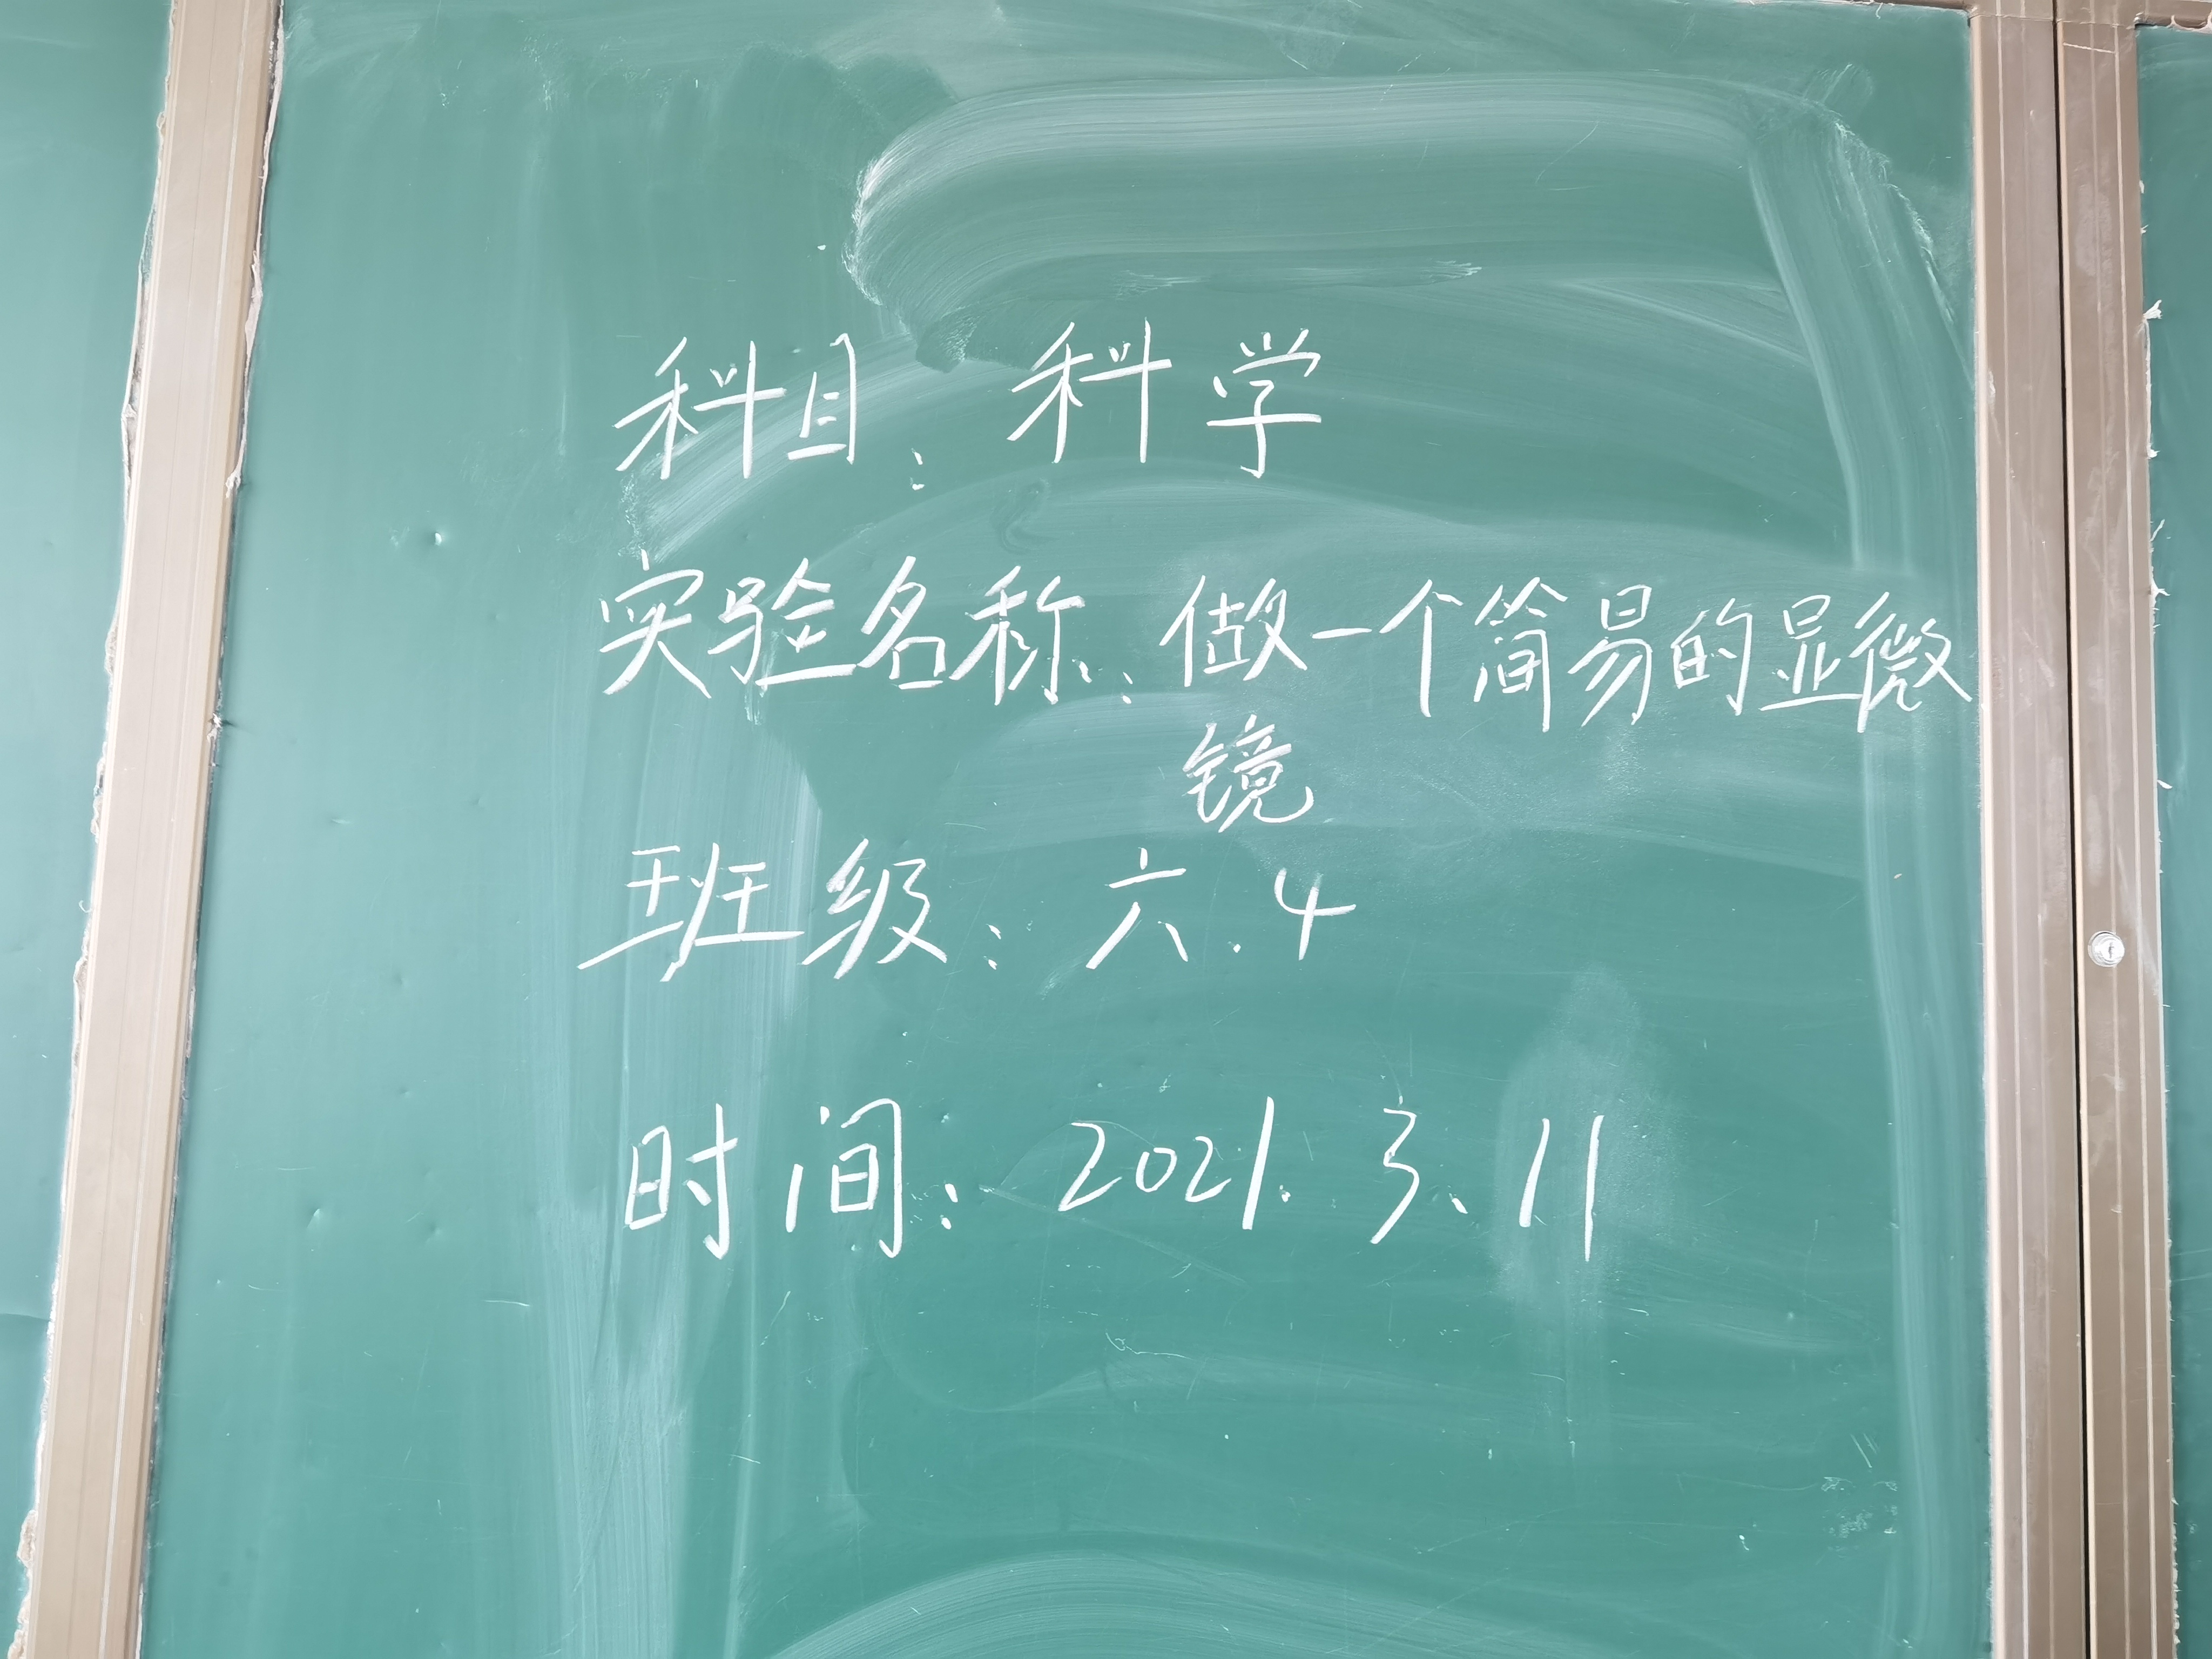 科目：科学
实验名称：做一个简易的显微
镜
班级：六.4
时间：2021.3.11